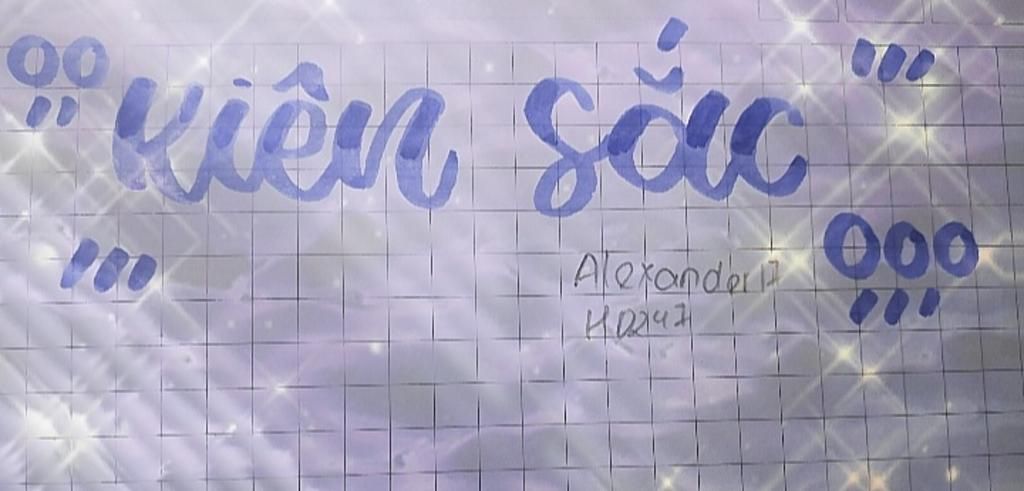 Kiên sắc
Alexander17
HD247